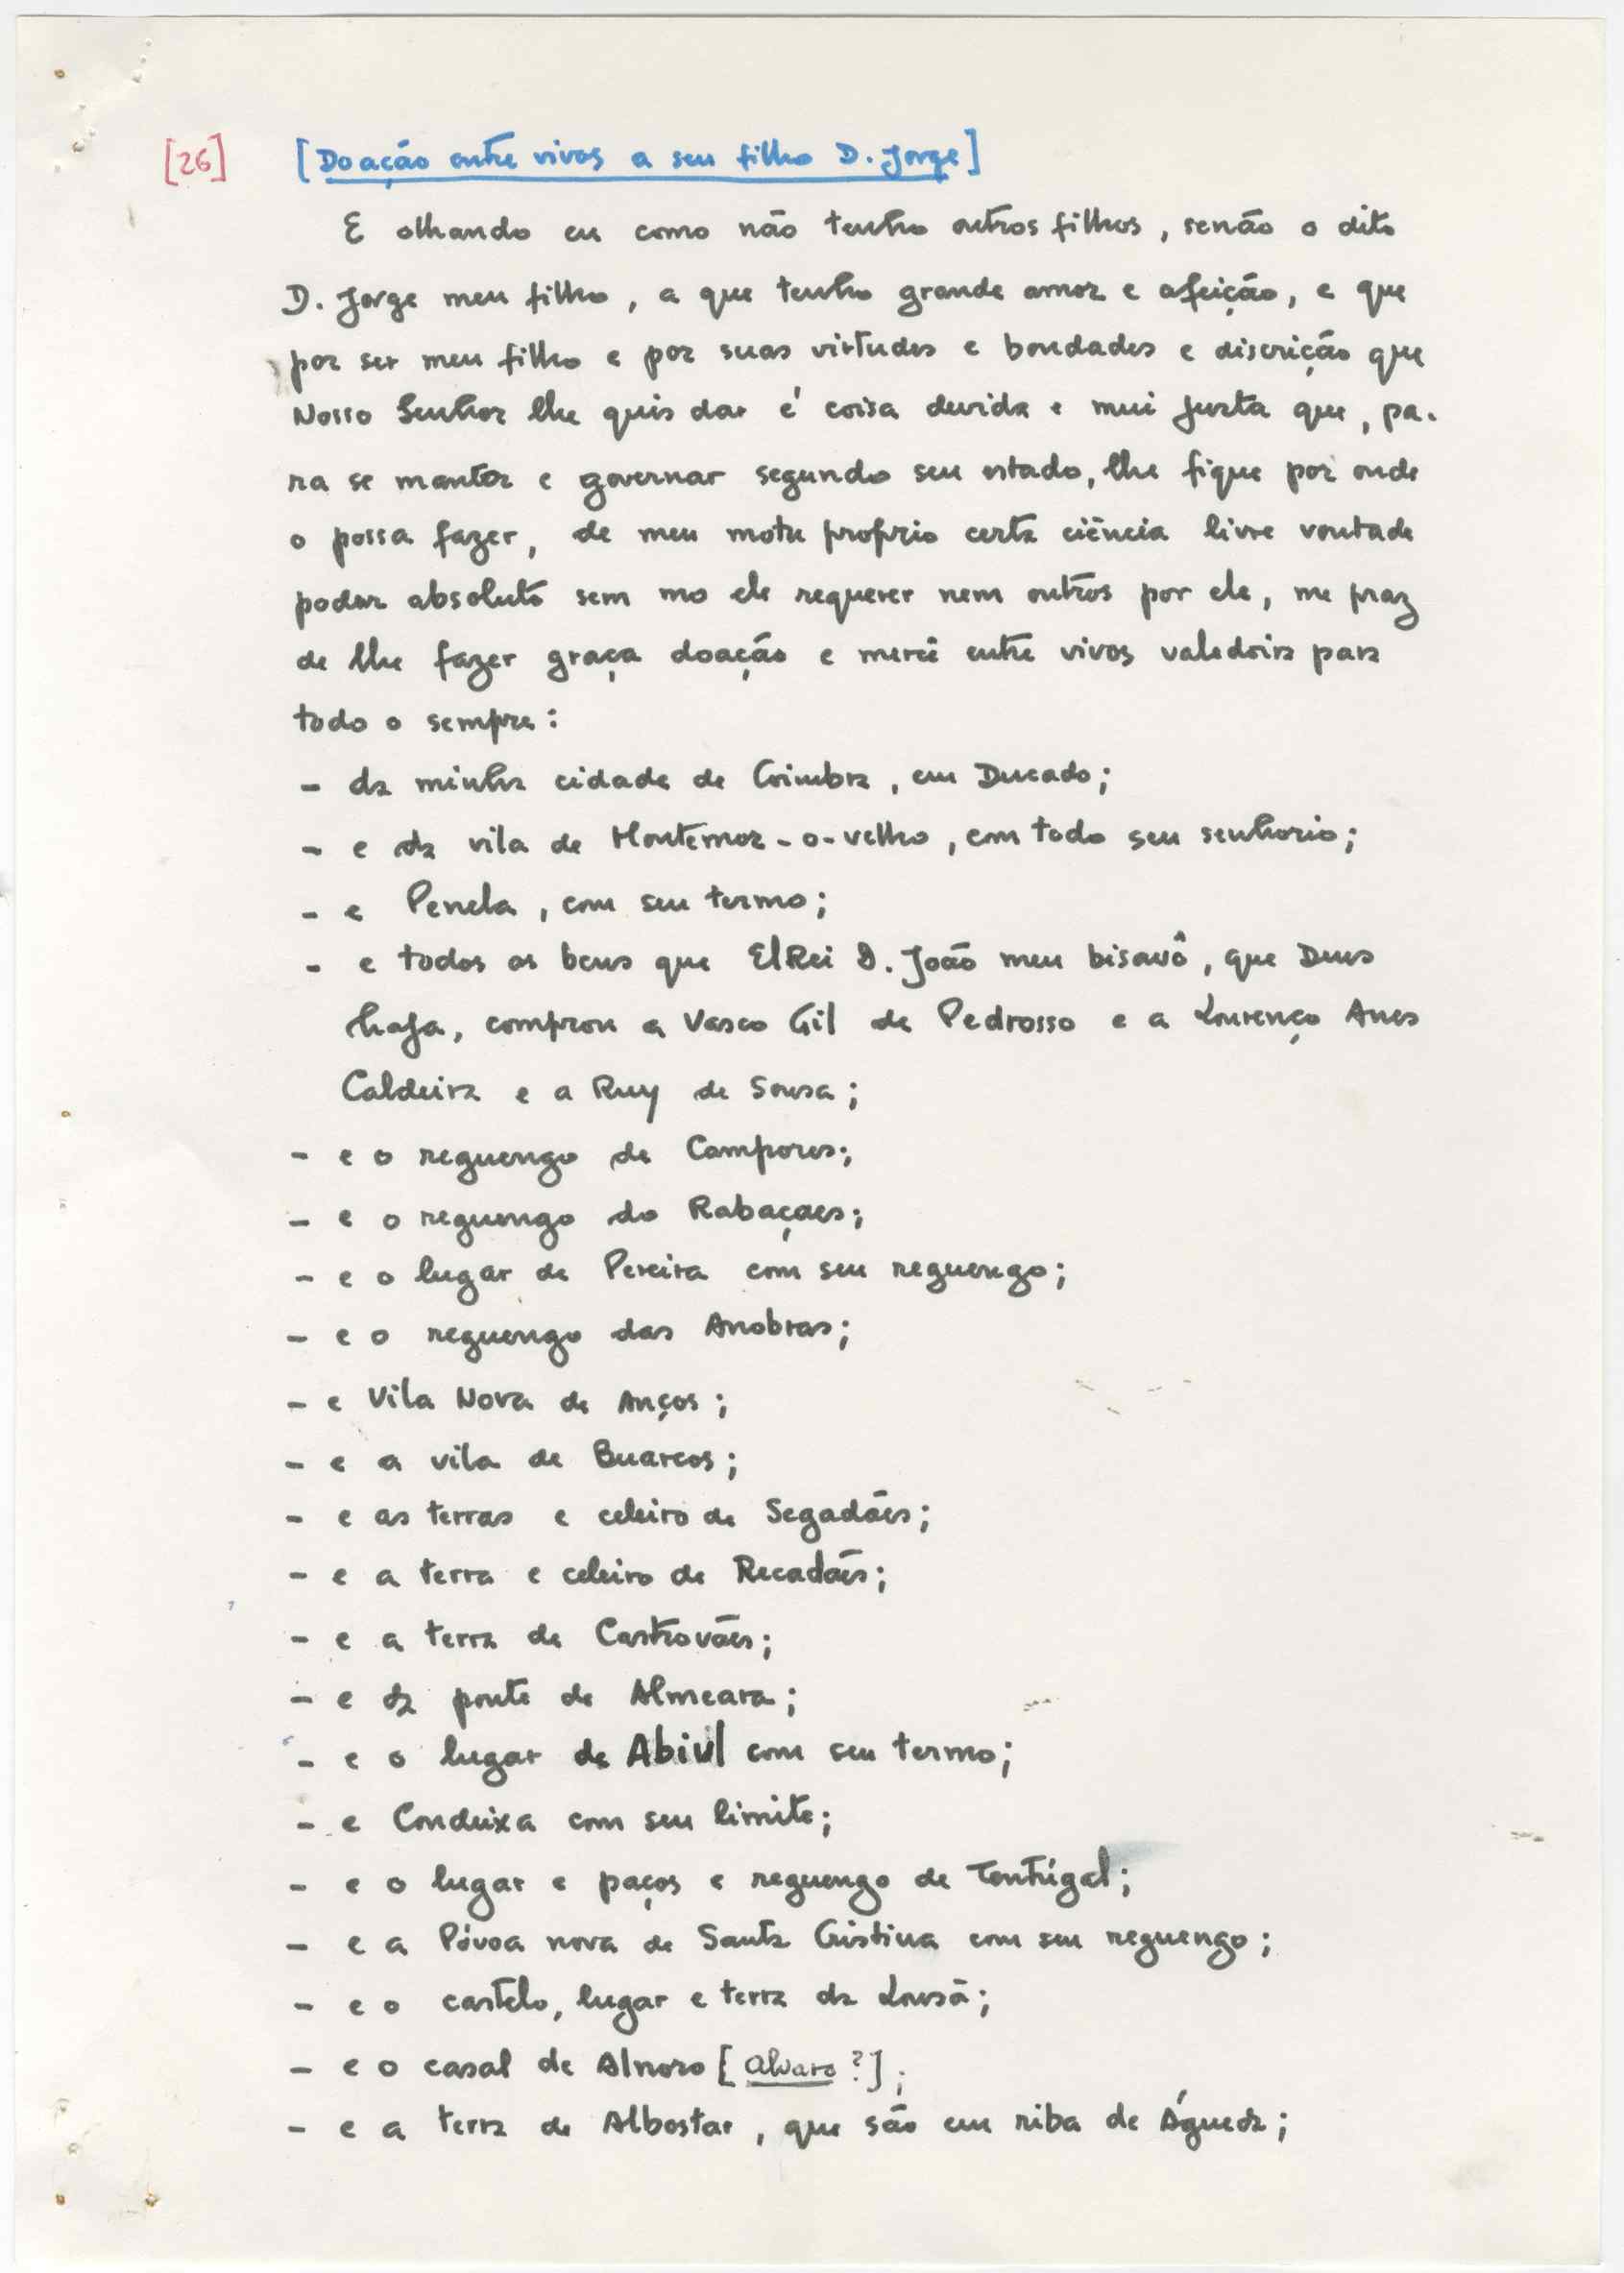 [26] [Doação entre vivos a seu filho D. Jorge]
E olhando eu como não tenho outros filhos, senão o dito
D. Jorge meu filho, a que tenho grande amor e afeição, e que
por ser meu filho e por suas virtudes e bondades e discrição que
Nosso Senhor lhe quis dar é coisa devida e mui justa que, pa-
ra se manter e governar segundo seu estado, lhe fique por onde
o possa fazer, de meu motu proprio certa ciência livre vontade
poder absoluto sem mo ele requerer nem outros por ele, me praz
de lhe fazer graça doação e mercê entre vivos valedoira para
todo o sempre:
- da minha cidade de Coimbra, em Ducado;
- e da vila de Montemor-o-velho, com todo seu senhorio;
- e Penela, com seu termo;
- e todos os bens que ElRei D. João meu bisavô, que Deus
haja, comprou a Vasco Gil de Pedrosso e a Lourenço Anes
Caldeira e a Ruy de Sousa;
- e o reguengo de Campores;
- e o reguengo do Rabaçaes;
- e o lugar de Pereira com seu reguengo;
- e o reguengo das Anobras;
- e Vila Nova de Anços;
- e a vila de Buarcos;
- e as terras e celeiro de Segadães;
- e a terra e celeiro de Recadães;
- e a terra de Castrovães;
- e da ponte de Almeara;
- e o lugar de Abiul com seu termo;
- e Condeixa com seu limite;
- e o lugar e paços e reguengo de Tentúgal;
- e a Póvoa nova de Santa Cristina com seu reguengo;
- e o castelo, lugar e terra da Lousã;
- e o casal de Alnoro [Alvaro?];
- e a terra de Albostar, que são em riba de Águeda;